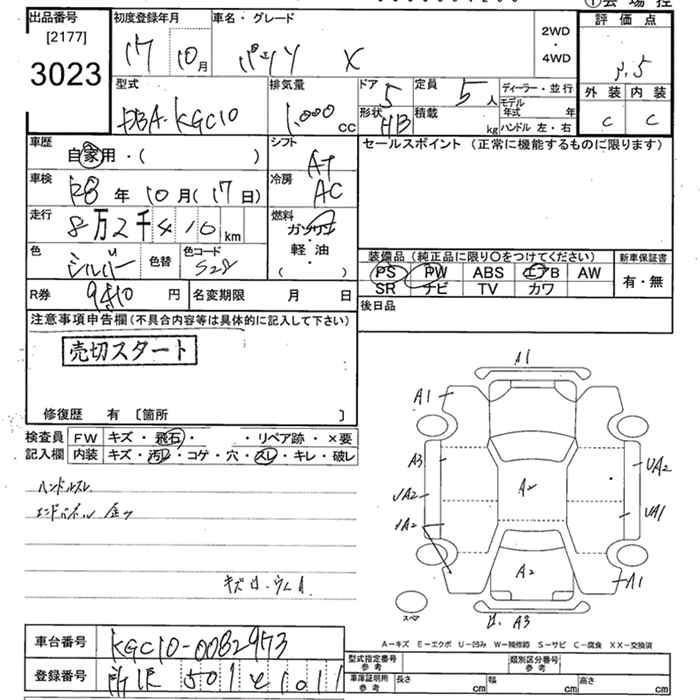 出品番号
[2177]
3023
初度登録年月
17 10月
車名・グレード
パッソ X
2WD
・
4WD
評価点
3.5
外装 内装
C C
型式
DBA-KGC10
排気量
1.000 CC
ドア 5
形状 HB
定員 5人
積載 kg
ディーラー・並行
モデル年式 年
ハンドル 左・右
車歴
自家用・( )
シフト
AT
セールスポイント (正常に機能するものに限ります)
車検
28年 10月(17日)
冷房
AC
走行
8万2千410km
燃料
ガソリン
・
軽油
( )
色
シルバー
色替
色コード
S28
装備品(純正品に限り○をつけてください)
新車保証書
PS PW ABS エアB AW
SR ナビ TV カワ
有・無
R券 9410円
名変期限 月 日
後日品
注意事項申告欄(不具合内容等は具体的に記入して下さい)
売切スタート
修復歴 有 〔箇所 〕
検査員記入欄
FW キズ・飛石・ ・リペア跡・×要
内装 キズ・汚レ・コゲ・穴・スレ・キレ・破レ
ハンドルスレ
キズ
A1
A1
A3
UA2
UA2
UA1
A2
A2
A1
A3
スペア
A－キズ E－エクボ U－凹み W－補修跡 S－サビ C－腐食 XX－交換済
車台番号
KGC10-0082973
登録番号
所沢 501 と 1011
型式指定番号
参考
類別区分番号
参考
車庫証明用
参考
長さ cm
幅 cm
高さ cm